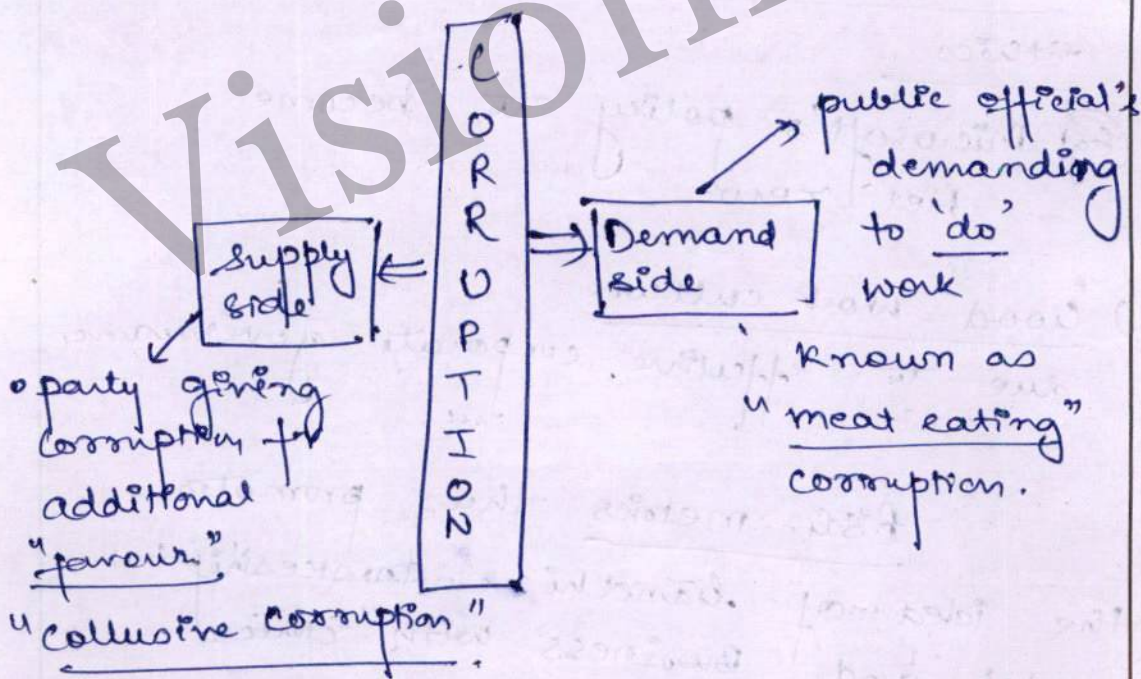 Vision
CORRUPTION
supply
side
• party giving
corruption for
additional
"favour"
"collusive corruption".
Demand
side
public official's
demanding
to 'do'
work
known as
"meat eating"
corruption.